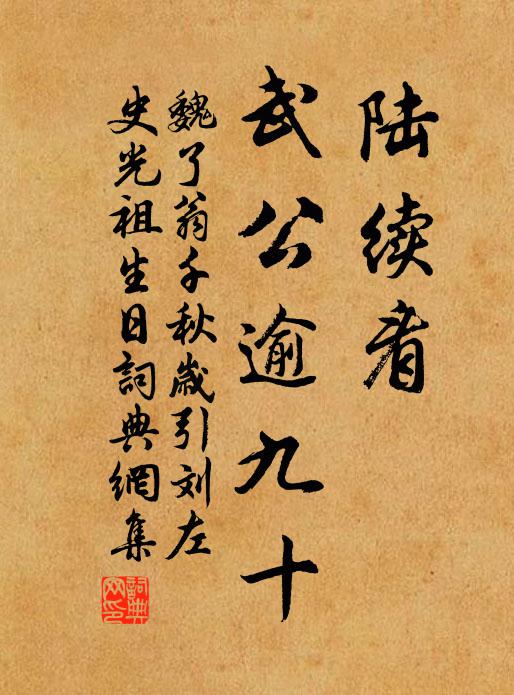 陆续看
武公逾九十
魏了翁千秋歲引刘左
史光祖生日詞典網集
詞典
网印